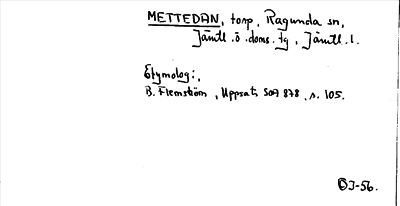 METTEDAN, torp, Ragunda sn,
Jämtl. ö. doms. tg, Jämtl. l.
Etymolog:,
B. Flemström, Uppsats SOA 878, s. 105.
OJ-56.